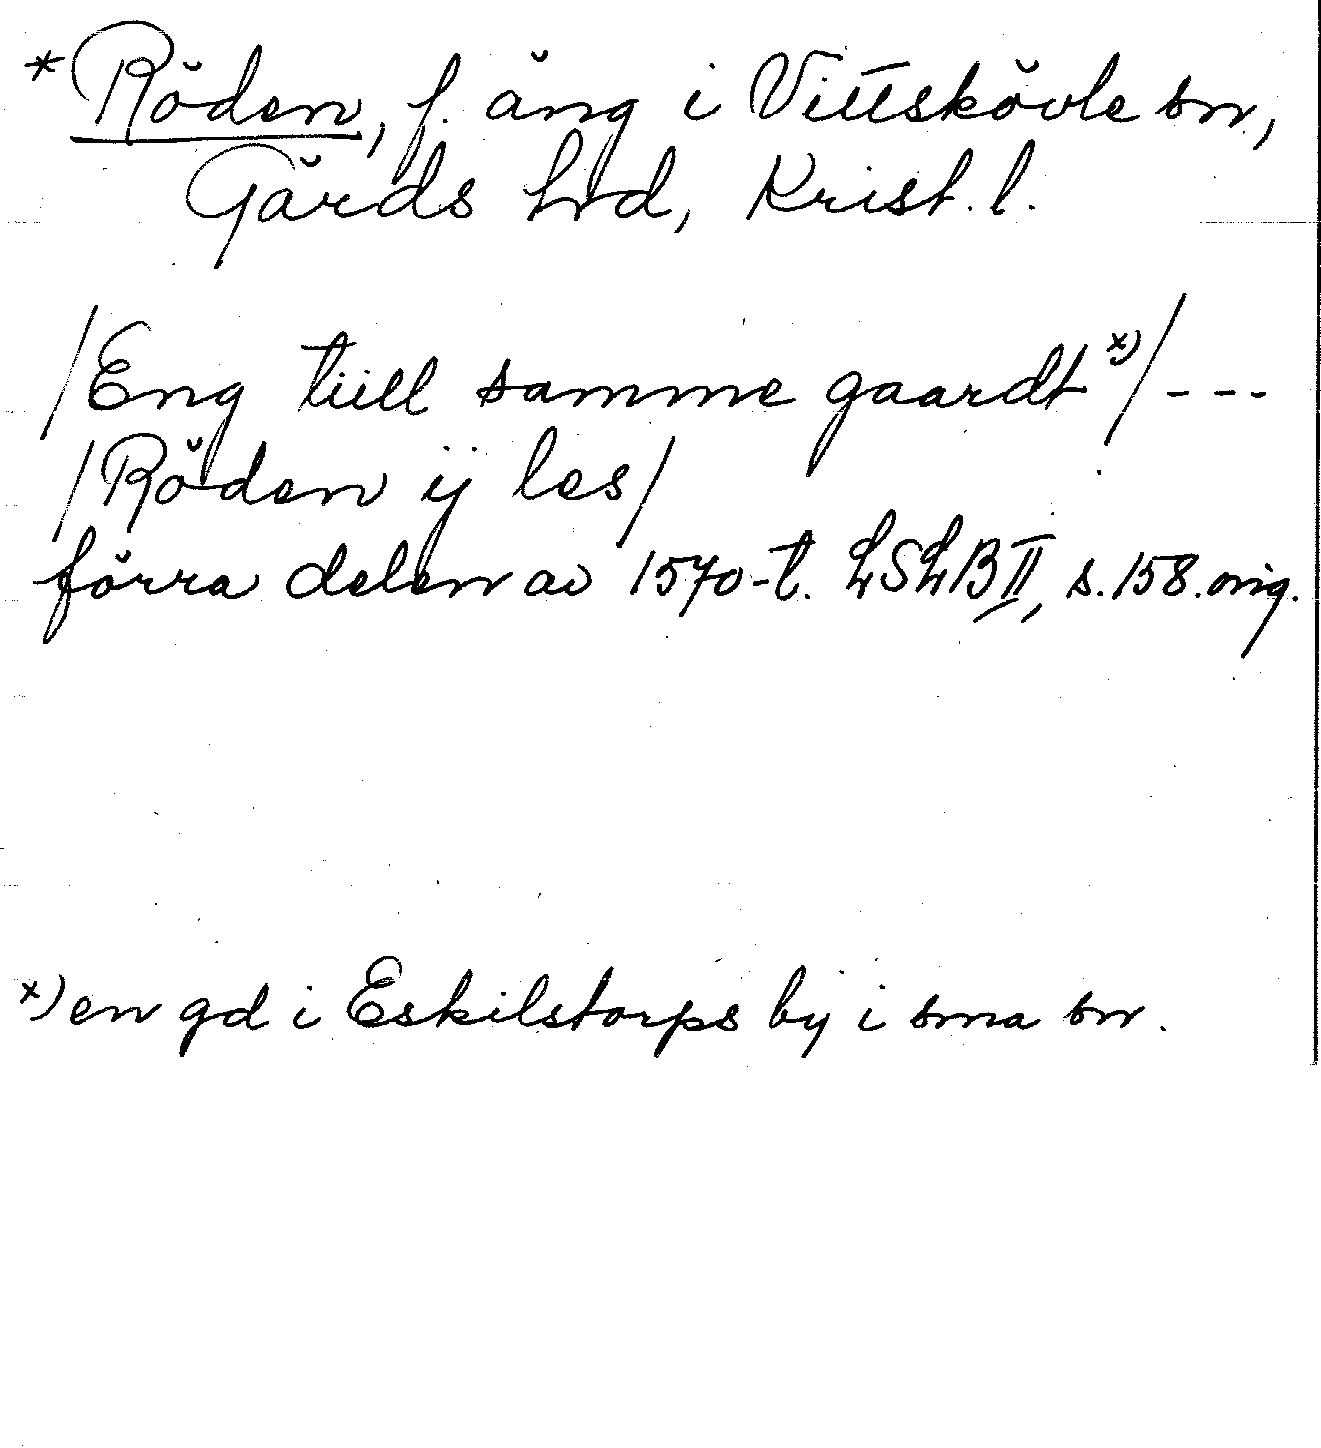 * Röden, f. äng i Vittskövle sn,
Gärds hrd, Krist. l.
/Eng tiill samme gaardt x)/ ---
/Röden ij les/
förra delen av 1570-t. LSLB II, s. 158. orig.
x) en gd i Eskilstorps by i sma sn.